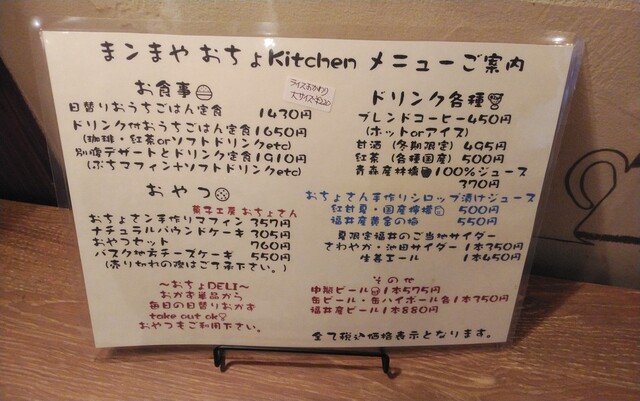 まンまや おちょKitchen メニューご案内
お食事
ライスおかわり
大サイズ+¥220
日替りおうちごはん定食 1430円
ドリンク付おうちごはん定食 1650円
(珈琲・紅茶orソフトドリンクetc)
別腹デザートとドリンク定食 1910円
(ぷちマフィン+ソフトドリンクetc)
おやつ
菓子工房 おちょさん
おちょさン手作りマフィン 357円
ナチュラルパウンドケーキ 305円
おやつセット 760円
バスク地方チーズケーキ 550円
(売り切れの夜はご了承下さい。)
〜おちょDELI〜
おかず単品から
毎日の日替りおかず
take out ok
おやつもご利用下さい。
ドリンク各種
ブレンドコーヒー 450円
(ホットorアイス)
甘酒 (冬期限定) 495円
紅茶 (各種国産) 500円
青森産林檎 100%ジュース
370円
おちょさん手作りシロップ漬けジュース
紅甘夏・国産檸檬 500円
福井産黄金の梅 550円
夏限定福井のご当地サイダー
さわやか・池田サイダー 1本350円
生姜エール 1本450円
その他
中瓶ビール 1本575円
缶ビール・缶ハイボール各1本350円
福井産ビール 1本880円
全て税込価格表示となります。